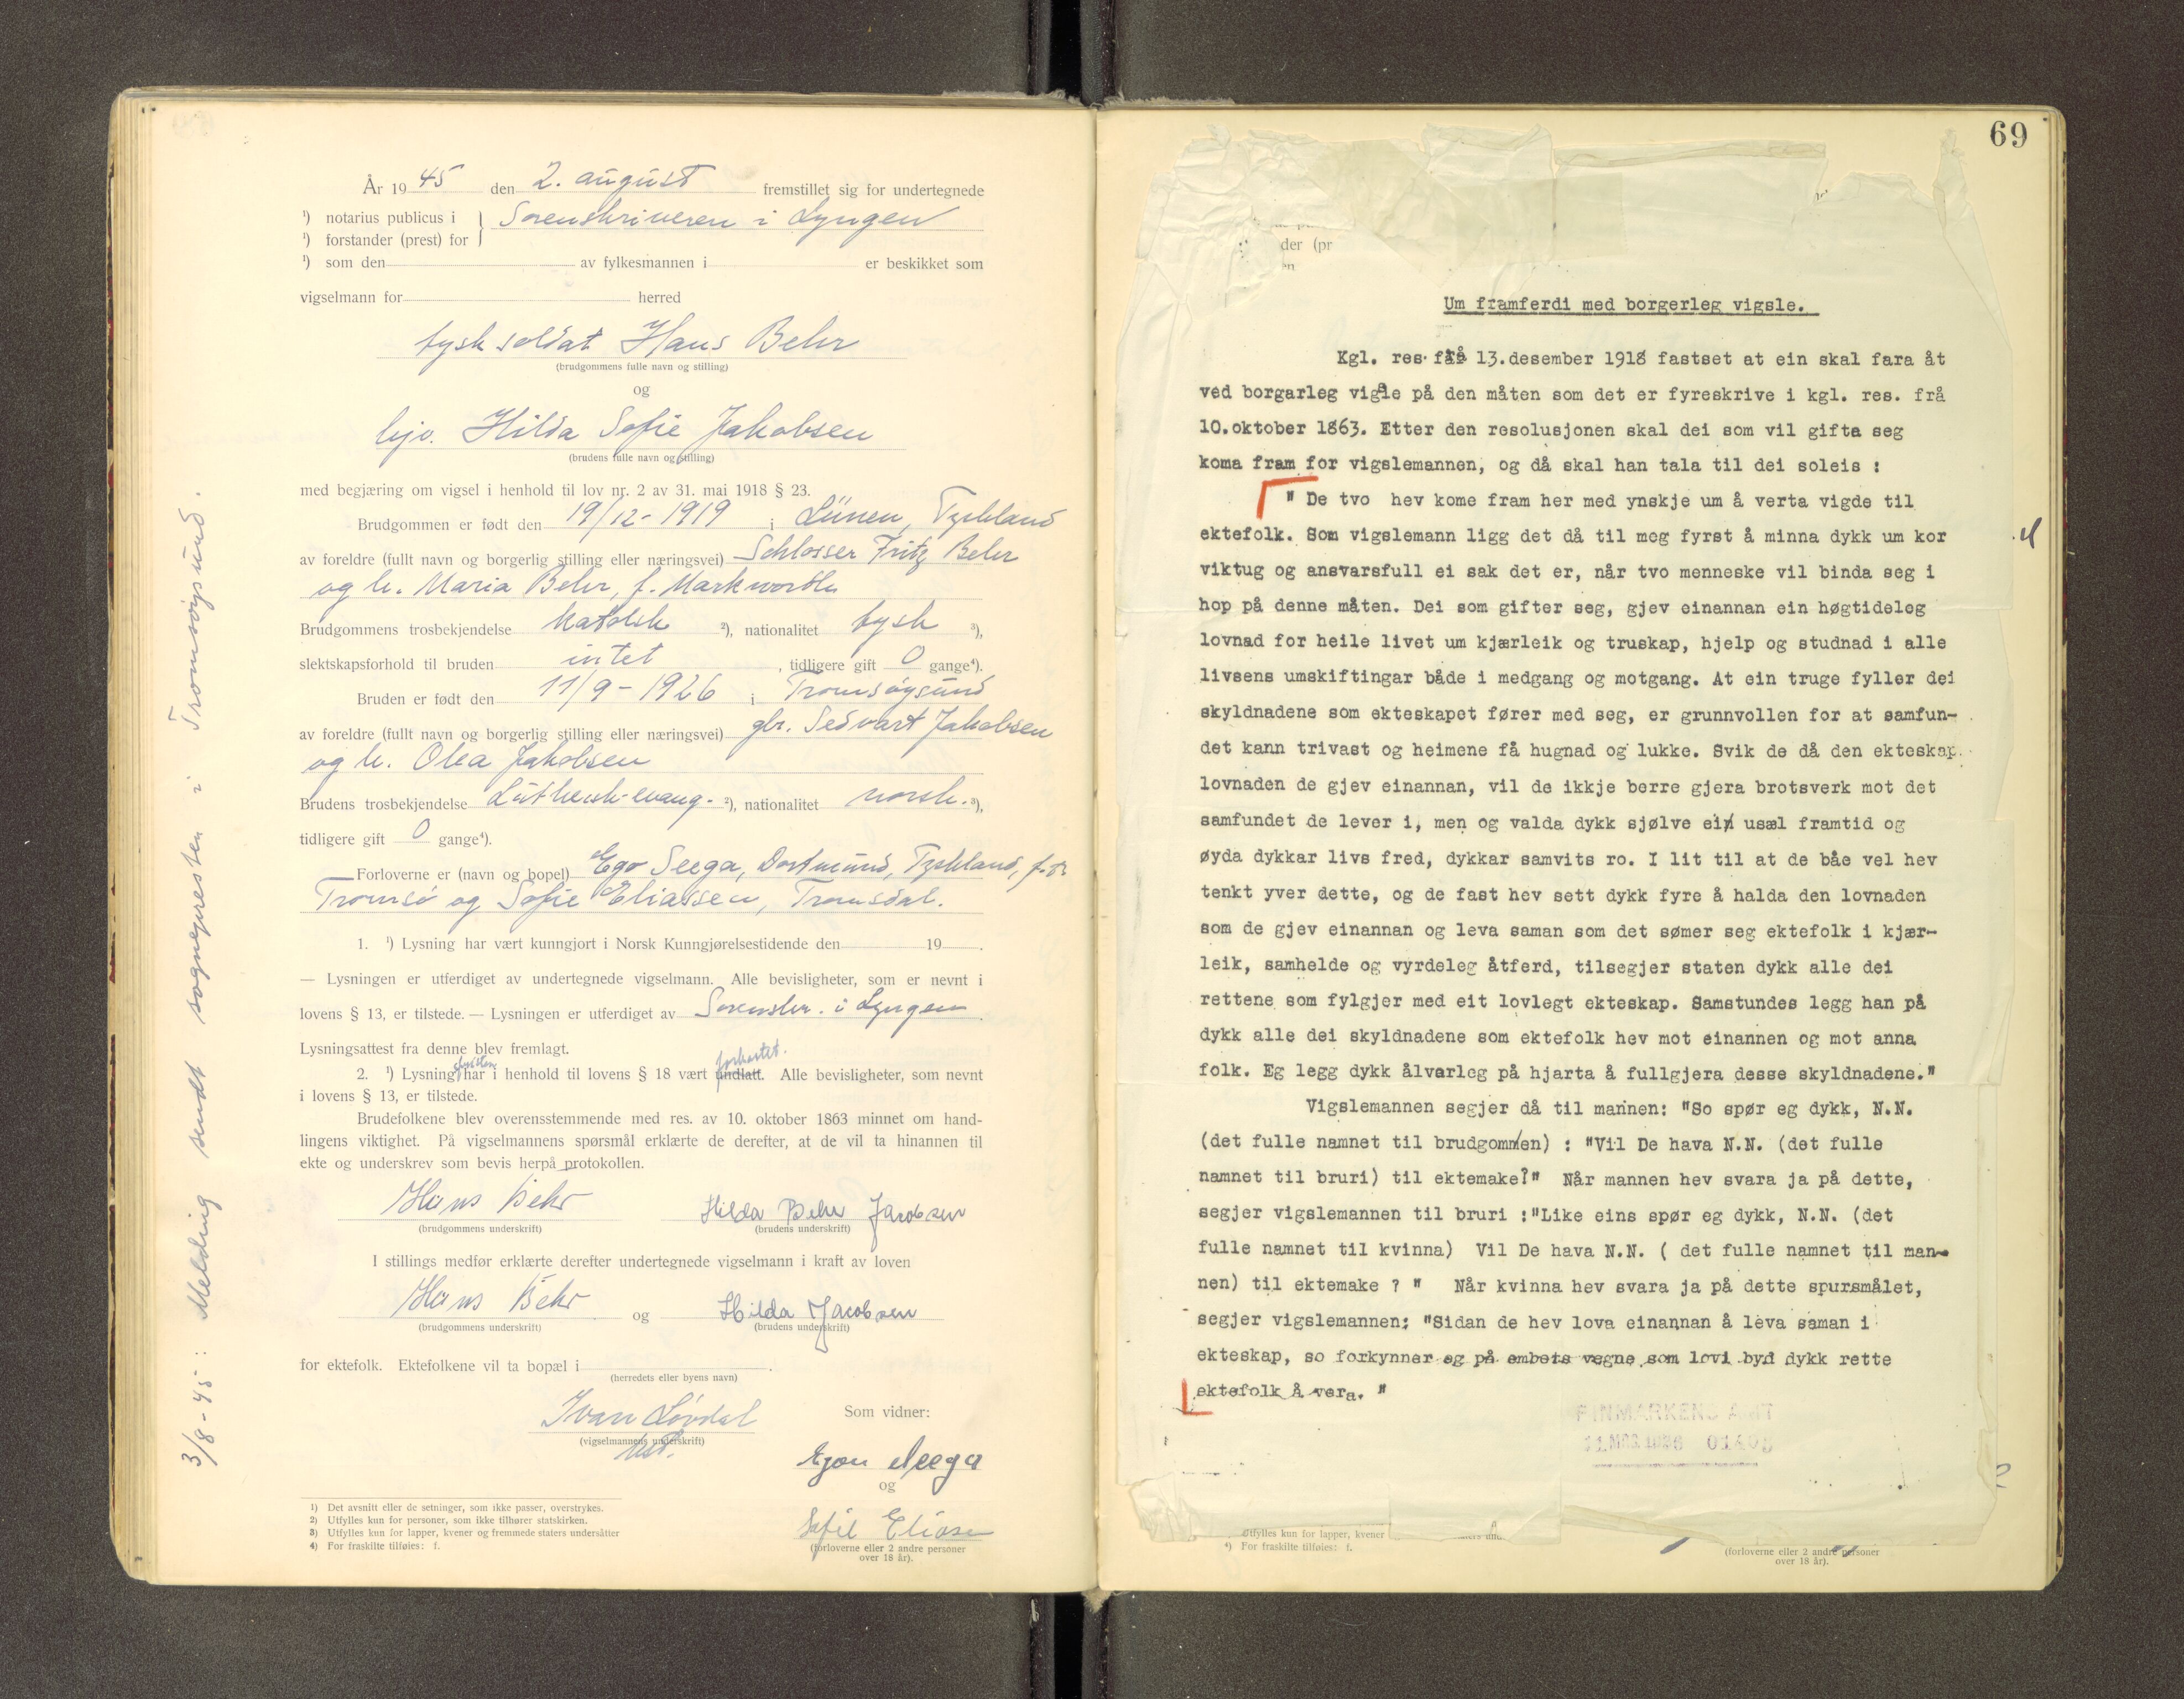 År 1945 den 2. august fremstillet sig for undertegnede
¹) notarius publicus i } Sorenskriveren i Lyngen
¹) forstander (prest) for
¹) som den av fylkesmannen i er beskikket som
vigselmann for herred
tysk soldat Hans Behr
(brudgommens fulle navn og stilling)
og
hjv. Hilda Sofie Jakobsen
(brudens fulle navn og stilling)
med begjæring om vigsel i henhold til lov nr. 2 av 31. mai 1918 § 23.
Brudgommen er født den 19/12-1919 i Lünen, Tyskland
av foreldre (fullt navn og borgerlig stilling eller næringsvei) Schlosser Fritz Behr
og h. Maria Behr, f. Markwordh
Brudgommens trosbekjendelse katolsk ²), nationalitet tysk ³),
slektskapsforhold til bruden intet, tidligere gift 0 gange⁴).
Bruden er født den 11/9-1926 i Tromsøysund
av foreldre (fullt navn og borgerlig stilling eller næringsvei) gbr. Sedvart Jakobsen
og h. Olea Jakobsen
Brudens trosbekjendelse Luthersk-evang- ²), nationalitet norsk. ³),
tidligere gift 0 gange⁴).
Forloverne er (navn og bopel) Ego Seega, Dortmund, Tyskland, f.t.
Tromsø og Sofie Eliassen, Tromsdal.
1. ¹) Lysning har vært kunngjort i Norsk Kunngjørelsestidende den 19 .
— Lysningen er utferdiget av undertegnede vigselmann. Alle bevisligheter, som er nevnt i
lovens § 13, er tilstede. — Lysningen er utferdiget av Sorenskr. i Lyngen.
Lysningsattest fra denne blev fremlagt.
2. ¹) Lysningsfristen har i henhold til lovens § 18 vært undlatt forkortet. Alle bevisligheter, som nevnt
i lovens § 13, er tilstede.
Brudefolkene blev overensstemmende med res. av 10. oktober 1863 minnet om hand-
lingens viktighet. På vigselmannens spørsmål erklærte de derefter, at de vil ta hinannen til
ekte og underskrev som bevis herpå protokollen.
Hans Behr Hilda Behr Jacobsen
(brudgommens underskrift) (brudens underskrift)
I stillings medfør erklærte derefter undertegnede vigselmann i kraft av loven
Hans Behr og Hilda Jacobsen
(brudgommens underskrift) (brudens underskrift)
for ektefolk. Ektefolkene vil ta bopæl i .
(herredets eller byens navn)
Ivan Løvdal Som vidner:
(vigselmannens underskrift)
Egon Seega
og
Sofie Eliasen
(forloverne eller 2 andre personer
over 18 år).
1) Det avsnitt eller de setninger, som ikke passer, overstrykes.
2) Utfylles kun for personer, som ikke tilhører statskirken.
3) Utfylles kun for lapper, kvener og fremmede staters undersåtter
4) For fraskilte tilføies: f.
3/8-45: Melding sendt sognepresten i Tromsøysund.
69
der (pr
Um framferdi med borgerleg vigsle.
Kgl. res. frå 13.desember 1918 fastset at ein skal fara åt
ved borgarleg vigsle på den måten som det er fyreskrive i kgl. res. frå
10.oktober 1863. Etter den resolusjonen skal dei som vil gifta seg
koma fram for vigslemannen, og då skal han tala til dei soleis :
" De tvo hev kome fram her med ynskje um å verta vigde til
ektefolk. Som vigslemann ligg det då til meg fyrst å minna dykk um kor
viktug og ansvarsfull ei sak det er, når tvo menneske vil binda seg i
hop på denne måten. Dei som gifter seg, gjev einannan ein høgtideleg
lovnad for heile livet um kjærleik og truskap, hjelp og studnad i alle
livsens umskiftingar både i medgang og motgang. At ein truge fyller dei
skyldnadene som ekteskapet fører med seg, er grunnvollen for at samfun-
det kann trivast og heimene få hugnad og lukke. Svik de då den ekteskap
lovnaden de gjev einannan, vil de ikkje berre gjera brotsverk mot det
samfundet de lever i, men og valda dykk sjølve ein usæl framtid og
øyda dykkar livs fred, dykkar samvits ro. I lit til at de båe vel hev
tenkt yver dette, og de fast hev sett dykk fyre å halda den lovnaden
som de gjev einannan og leva saman som det sømer seg ektefolk i kjær-
leik, samhelde og vyrdeleg åtferd, tilsegjer staten dykk alle dei
rettene som fylgjer med eit lovlegt ekteskap. Samstundes legg han på
dykk alle dei skyldnadene som ektefolk hev mot einannen og mot anna
folk. Eg legg dykk ålvarleg på hjarta å fullgjera desse skyldnadene."
Vigslemannen segjer då til mannen: "So spør eg dykk, N.N.
(det fulle namnet til brudgommen) : "Vil De hava N.N. (det fulle
namnet til bruri) til ektemake?" Når mannen hev svara ja på dette,
segjer vigslemannen til bruri :"Like eins spør eg dykk, N.N. (det
fulle namnet til kvinna) Vil De hava N.N. ( det fulle namnet til man-
nen) til ektemake ? " Når kvinna hev svara ja på dette spursmålet,
segjer vigslemannen: "Sidan de hev lova einannan å leva saman i
ekteskap, so forkynner eg på embets vegne som lovi byd dykk rette
ektefolk å vera. "
FINMARKENS AMT
Utfylles kun for lapper, kvener
⁴) For fraskilte tilføies: f.
(forloverne eller 2 andre personer
over 18 år).